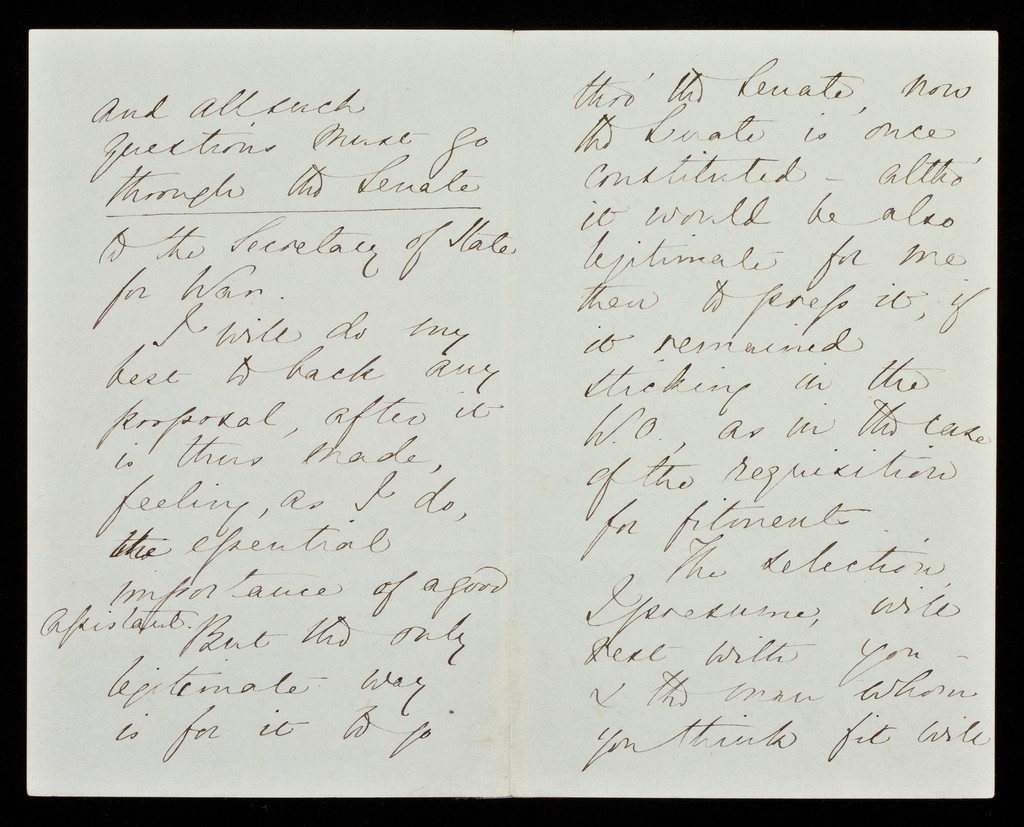 and all such
questions must go
through the Senate
to the Secretary of State
for War.
I will do my
best to back any
proposal, after it
is thus made,
feeling, as I do,
the essential
importance of a good
assistant. But the only
legitimate way
is for it to go
thro' the Senate, now
the Senate is once
constituted - altho'
it would be also
legitimate for me
then to press it, if
it remained
sticking in the
W.O., as in the case
of the requisition
for fitments.
The selection,
I presume, will
rest with you -
& the man whom
you think fit will